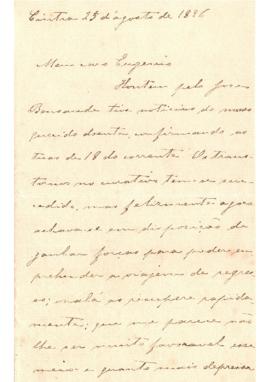 Cintra 25 d'agosto de 1896
Meu caro Eugenio
Hontem pelo José
Bensaude tive noticias do nosso
querido doente, confirmando as
tuas de 18 do corrente. Os trans-
tornos no curativo teem-se suc-
cedido, mas felizmente agora
achava-se em disposição de
ganhar forças para poder em-
prehender a viagem de regres-
so; oxalá se recupere rapida-
mente; que me parece não
lhe ser muito favoravel esse
meio e quanto mais depressa